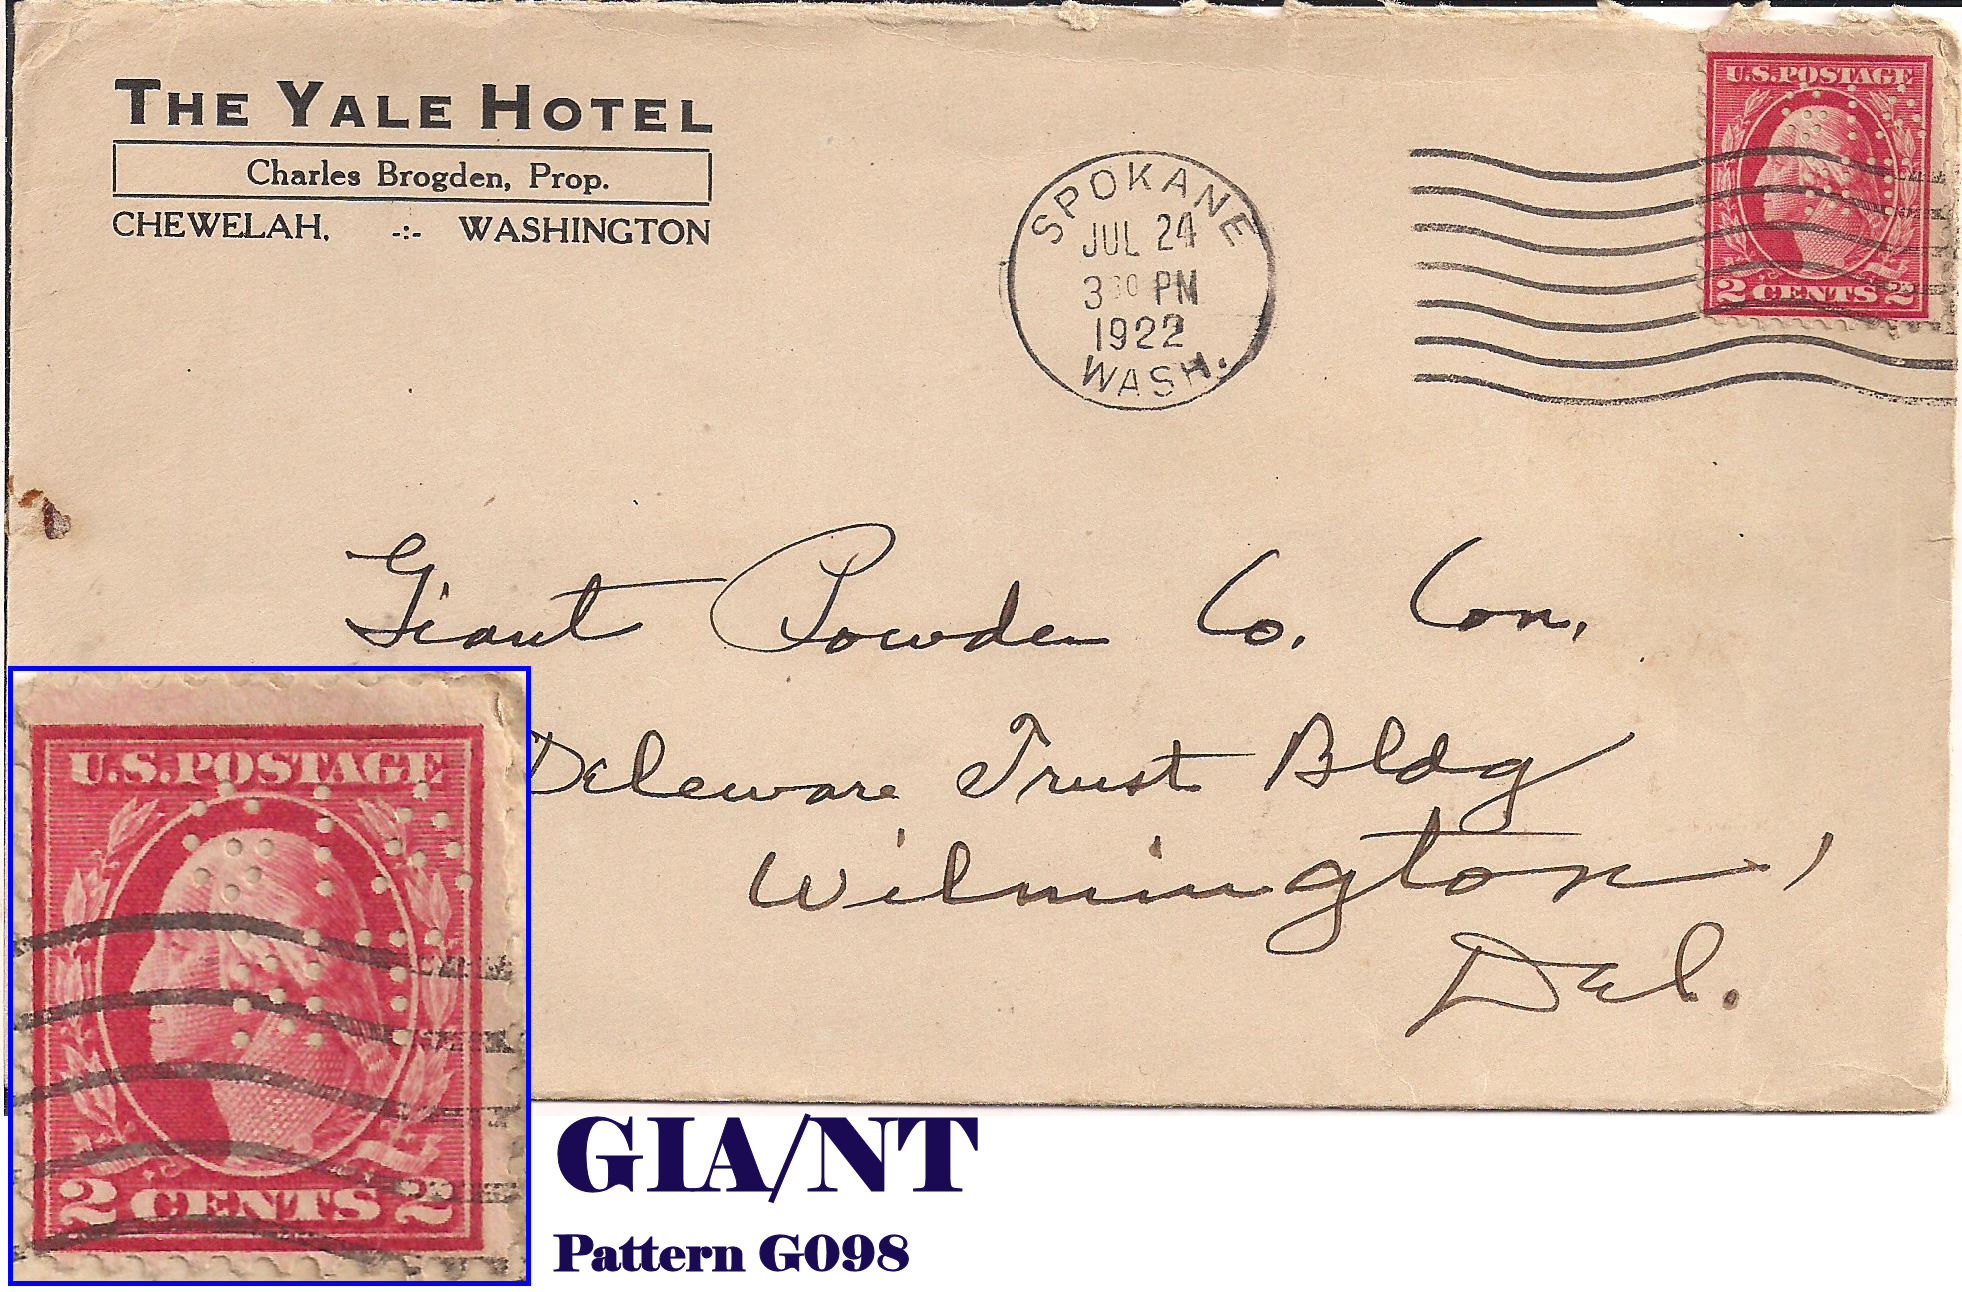 THE YALE HOTEL
Charles Brogden, Prop.
CHEWELAH, -:- WASHINGTON
SPOKANE
JUL 24
3 30 PM
1922
WASH.
U.S.POSTAGE
2 CENTS 2
Giant Powder Co. Con.
Deleware Trust Bldg
Wilmington,
Del.
U.S.POSTAGE
GIA
NT
2 CENTS 2
GIA/NT
Pattern G098